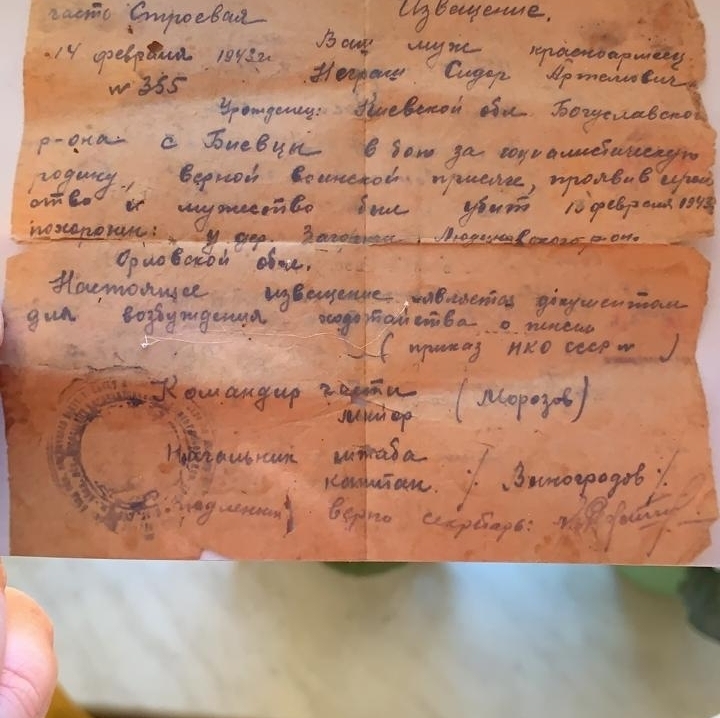 часть Строевая Извещение.
14 февраля 1943г. Ваш муж красноармеец
№ 355 Сидор Артемович
Урожденец: Киевской обл Богуславского
р-она с Биевцы в бою за социалистическую
родину, верной воинской присяге, проявив герой
ство и мужество был убит февраля 1943
похоронен: у дер. Людиновского р-он.
Орловской обл.
Настоящее извещение является документом
для возбуждения ходотайства о пенсии
( приказ НКО СССР № )
Командир части (Морозов)
майор
Начальник штаба
капитан ./. Виноградов ./.
верно секретарь: